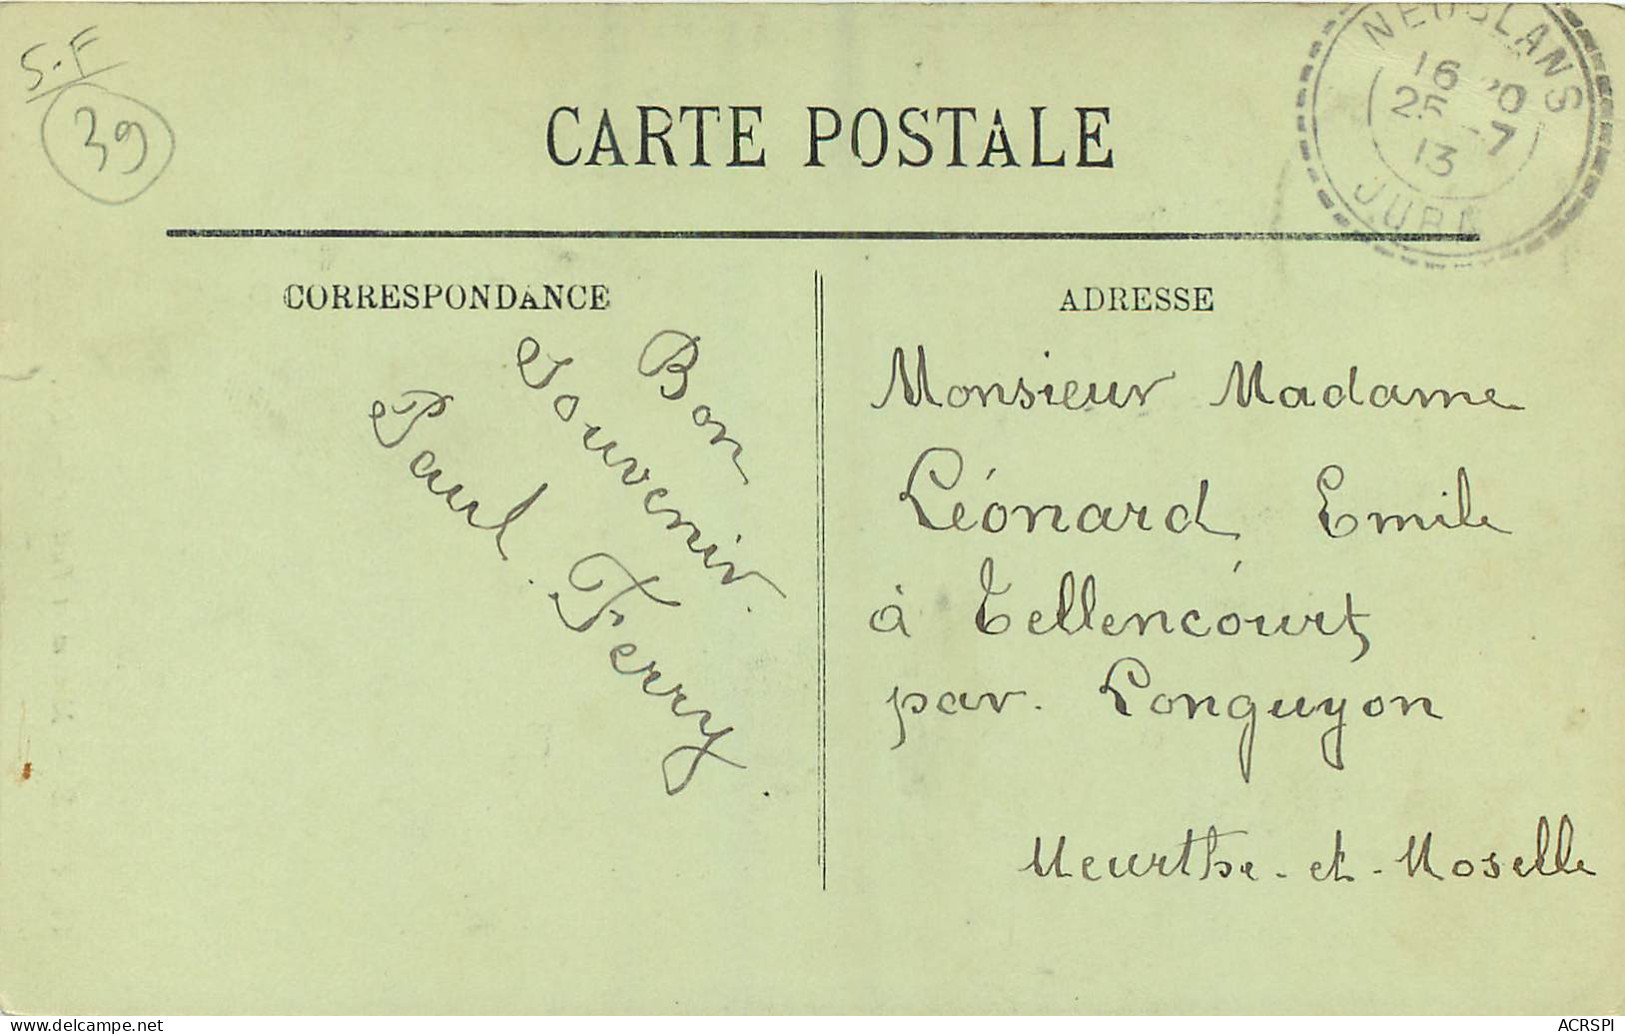 S-F
39
CARTE POSTALE
NEUBLANS
16
25 -7
13
JURA
CORRESPONDANCE
Bon
Souvenir.
Paul. Ferry.
ADRESSE
Monsieur Madame
Léonard Emile
à Tellencourt
par. Longuyon
Meurthe-et-Moselle
www.delcampe.net
ACRSPI